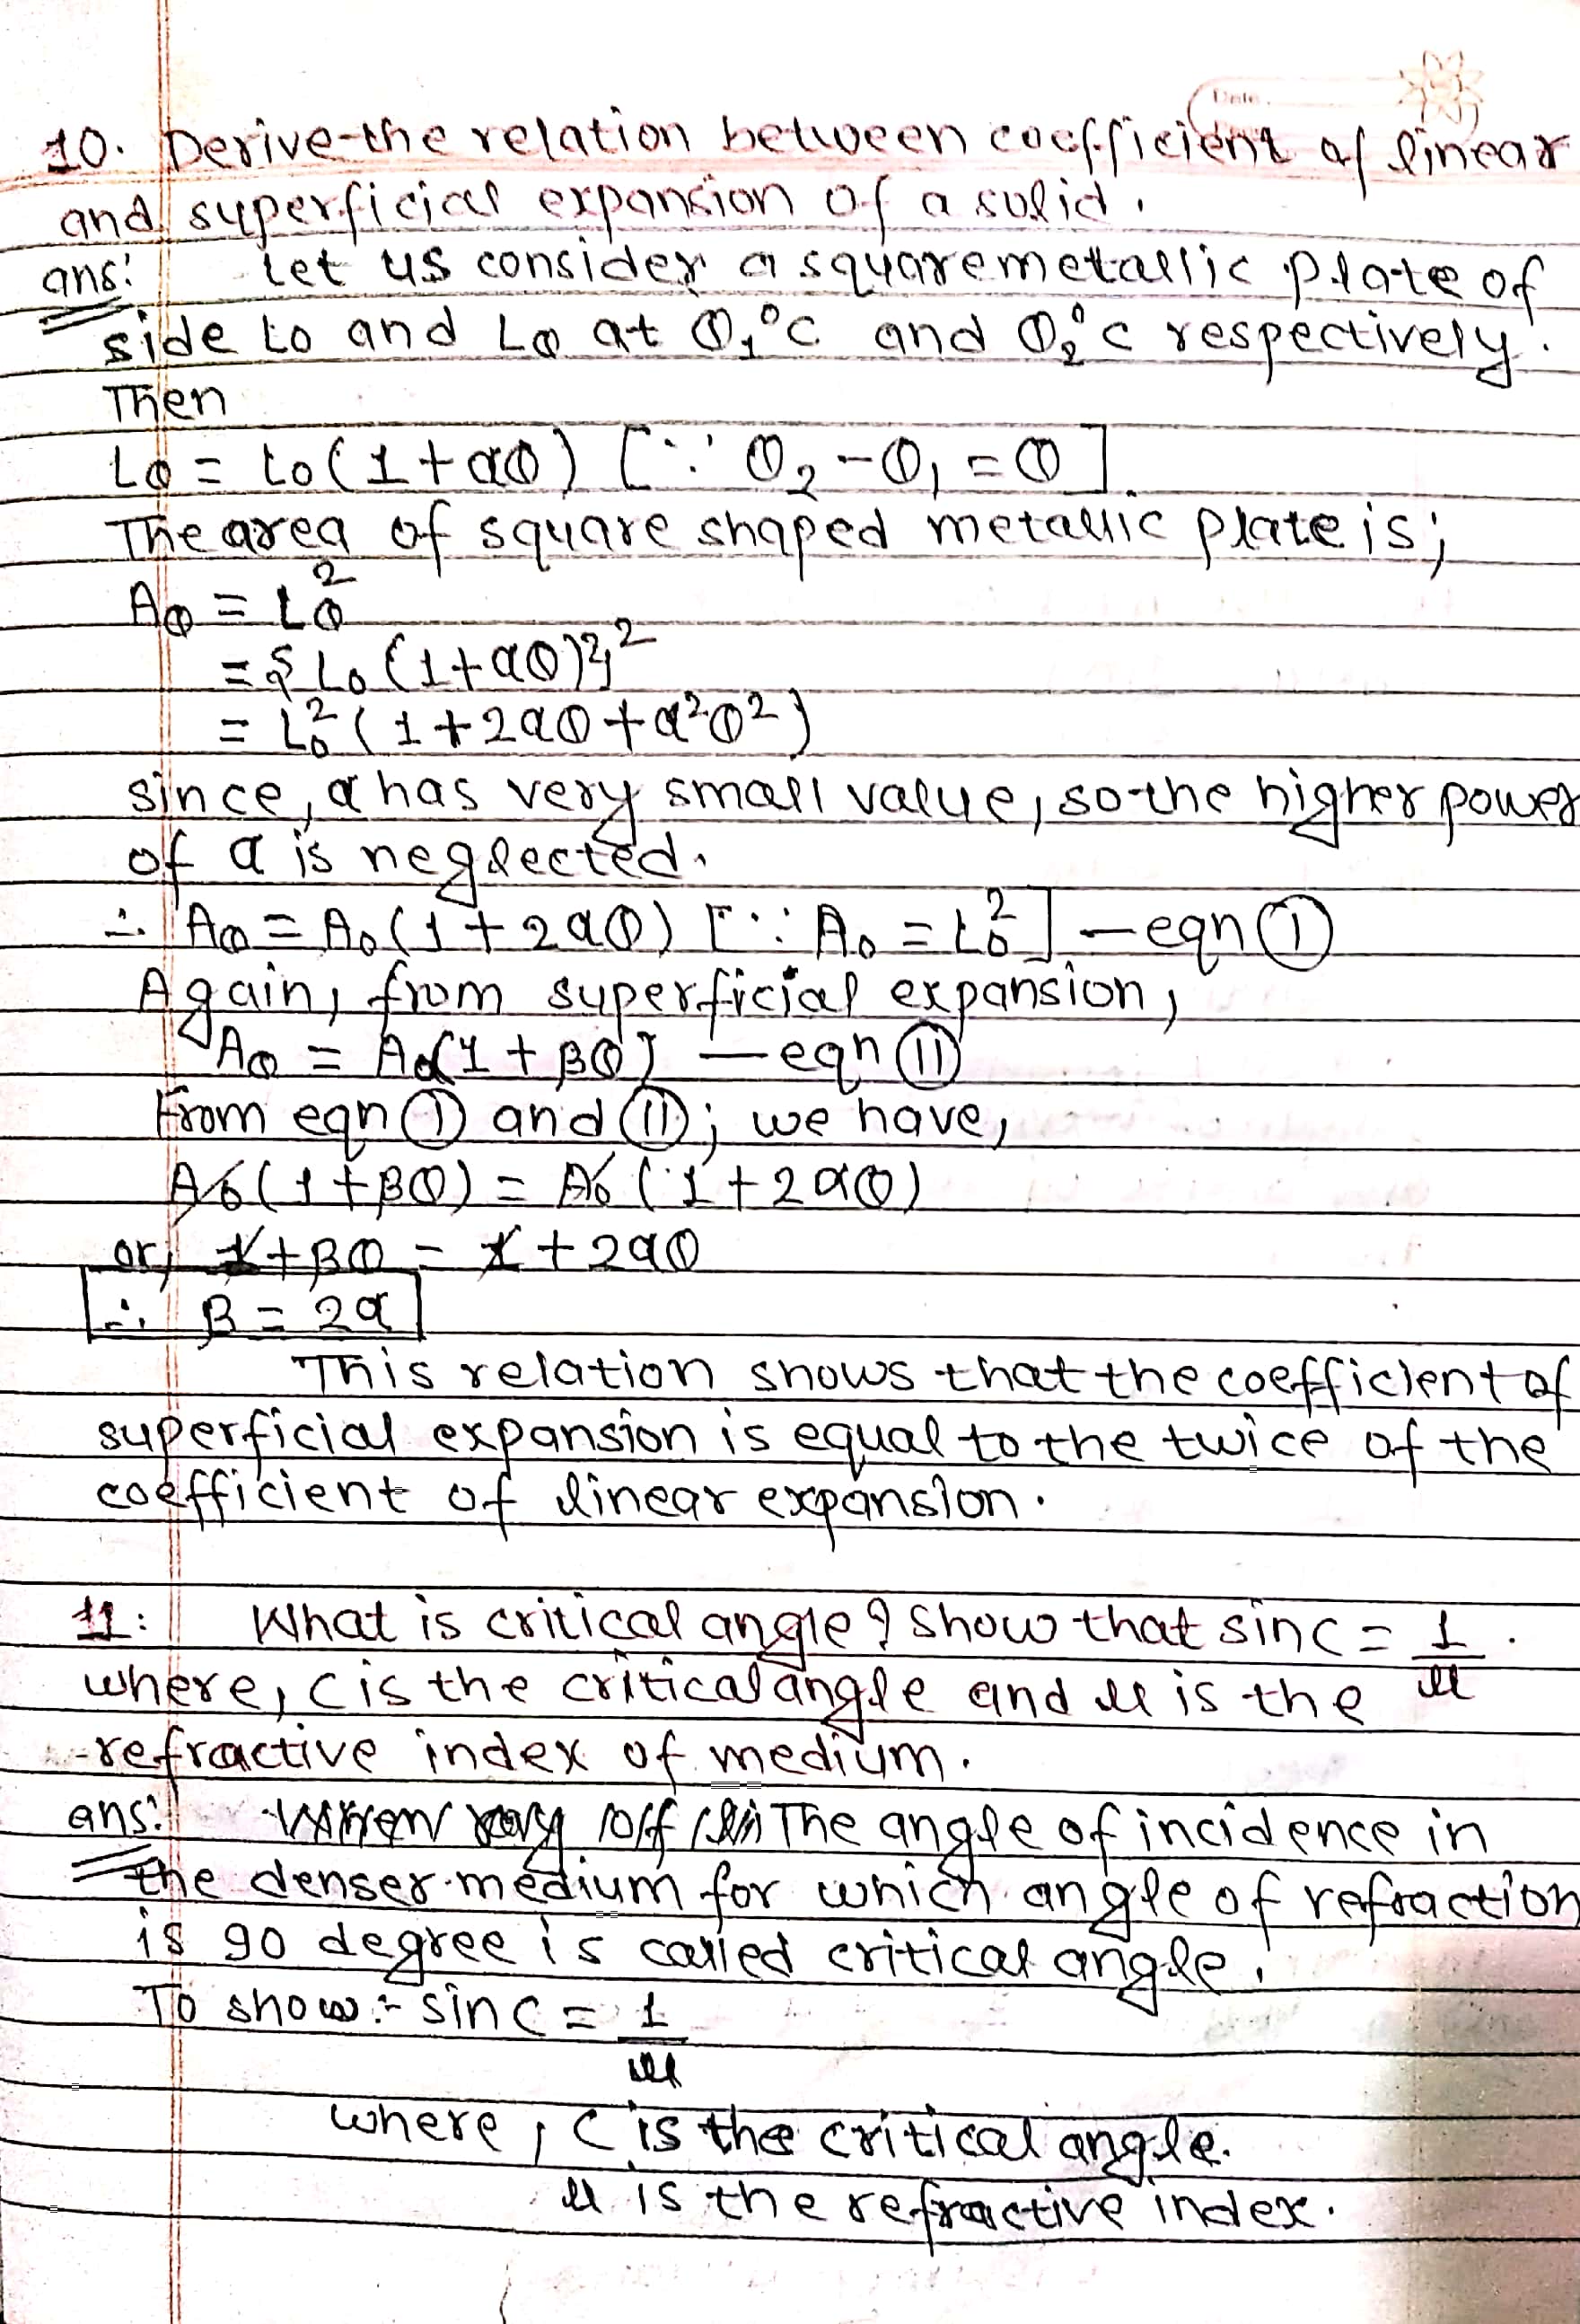 Date.
10. Derive the relation between coefficient of linear
and superficial expansion of a solid.
ans: Let us consider a square metallic plate of
side Lo and Lθ at θ₁°c and θ₂°c respectively.
Then
Lθ = Lo(1+αθ) [∵ θ₂-θ₁ = θ].
The area of square shaped metallic plate is;
Aθ = Lθ²
= {Lo(1+αθ)}²
= Lo²(1+2αθ+α²θ²)
since, α has very small value, so the higher power
of α is neglected.
∴ Aθ = Ao(1+2αθ) [∵ Ao = Lo²] – eqn (I)
Again, from superficial expansion,
Aθ = Ao(1+βθ) – eqn (II)
From eqn (I) and (II); we have,
Ao(1+βθ) = Ao(1+2αθ)
or, 1+βθ = 1+2αθ
∴ β = 2α
This relation shows that the coefficient of
superficial expansion is equal to the twice of the
coefficient of linear expansion.
11: What is critical angle? Show that sinc = 1/μ.
where, c is the critical angle and μ is the
refractive index of medium.
ans: The angle of incidence in
the denser medium for which angle of refraction
is 90 degree is called critical angle.
To show:- sin c = 1/μ
where, c is the critical angle.
μ is the refractive index.